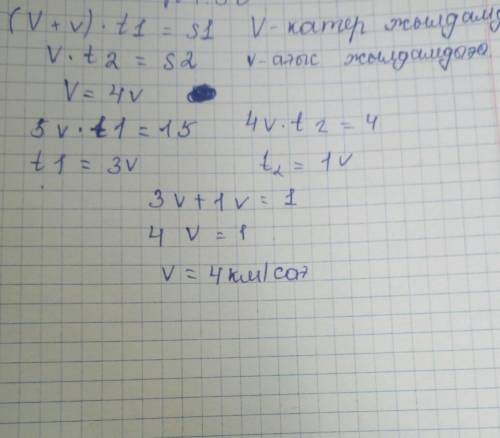 (V + v) · t1 = s1 V - катер жылдамд
v · t2 = s2 v - ағыс жылдамдығы
V = 4v
5v · t1 = 15 4v · t2 = 4
t1 = 3v t2 = 1v
3v + 1v = 1
4 v = 1
v = 4 км/сағ